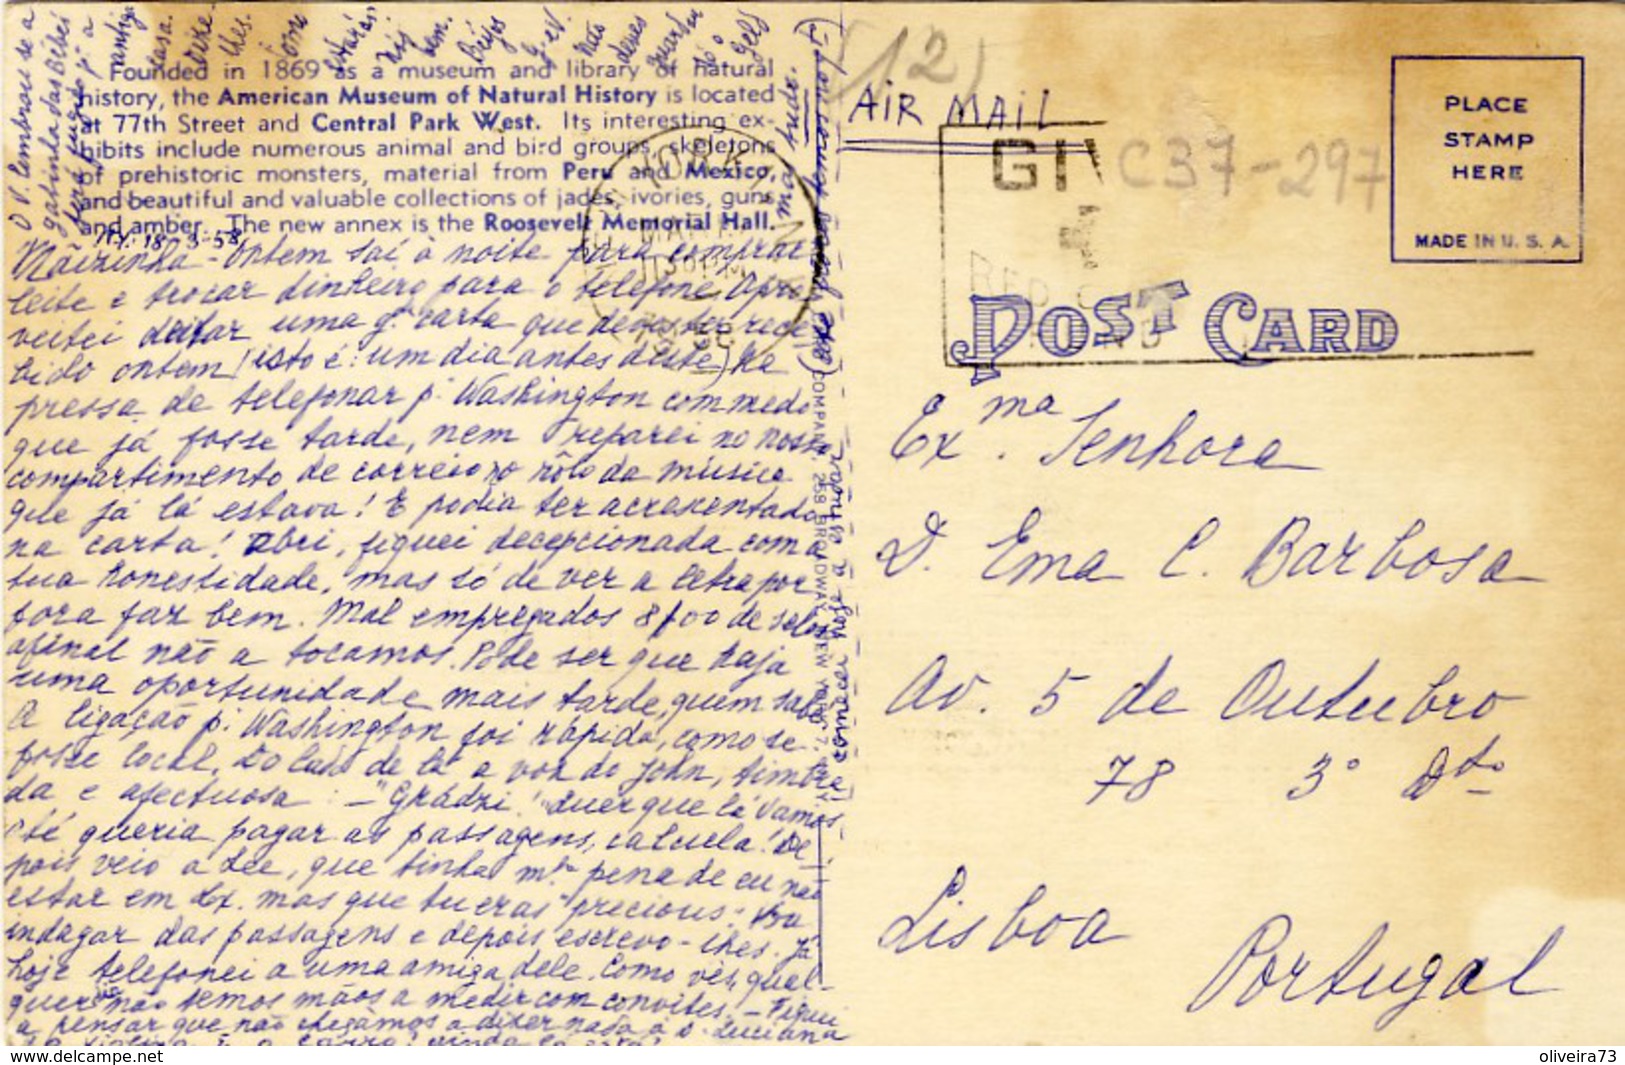 Founded in 1869 as a museum and library of natural
history, the American Museum of Natural History is located
at 77th Street and Central Park West. Its interesting ex-
hibits include numerous animal and bird groups, skeletons
of prehistoric monsters, material from Peru and Mexico,
and beautiful and valuable collections of jades, ivories, guns
and amber. The new annex is the Roosevelt Memorial Hall.
N.Y. 18-3-58
Mãizinha - Ontem saí à noite para comprar
leite e trocar dinheiro para o telefone. Apro-
veitei deitar uma gde carta que deves ter rece-
bido ontem (isto é: um dia antes deste) Na
pressa de telefonar p. Washington com medo
que já fosse tarde, nem reparei no nosso
compartimento de correio no rôlo da música
que já lá estava! E podia ter acrescentado
na carta! Abri, fiquei decepcionada com a
tua honestidade, mas só de ver a letra por
fora faz bem. Mal empregados 8$00 de selos
afinal não a tocamos. Pode ser que haja
uma oportunidade mais tarde, quem sabe
A ligação p. Washington foi rápida, como se
fosse local. Do lado de lá a voz do John, timbra-
da e afectuosa: - "Grádzi!" Quer que lá vamos
até queria pagar as passagens, calcula! De-
pois veio a Lee, que tinha mta pena de eu não
estar em Lx. mas que tu eras "precious". Vou
indagar das passagens e depois escrevo-lhes. Já
hoje telefonei a uma amiga dele. Como vês, qual-
quer não temos mãos a medir com convites. - Fiquei
a pensar que não chegámos a dizer nada à D. Luciana
O V. lembrou-se a
gatinha das Bibi
AIR MAIL
(12)
C37-297
PLACE
STAMP
HERE
MADE IN U. S. A.
POST CARD
Exma. Senhora
D. Ema C. Barbosa
Av. 5 de Outubro
78 3º Dto
Lisboa
Portugal
COMPANY, 259 BROADWAY, NEW YORK 7, N.Y.
começar hoje a estudar
mas tudo.
https://www.delcampe.net
oliveira73